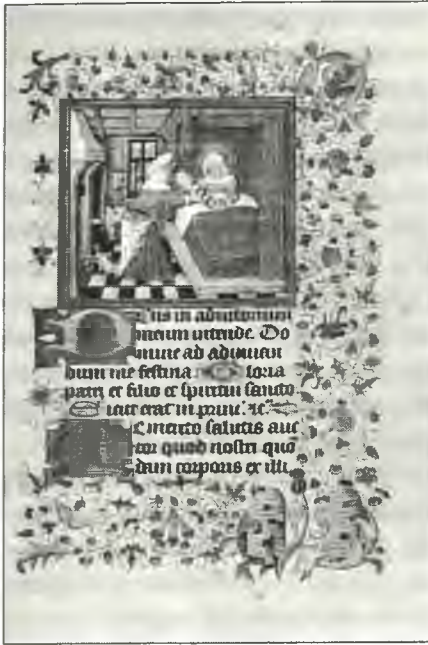 Deus in adiutorium
meum intende. Do
mine ad adiuuan
dum me festina. Gloria
patri et filio et spiritui sancto
Sicut erat in princ. ꝛc.
Memento salutis auc
tor quod nostri quo
dam corporis ex illi